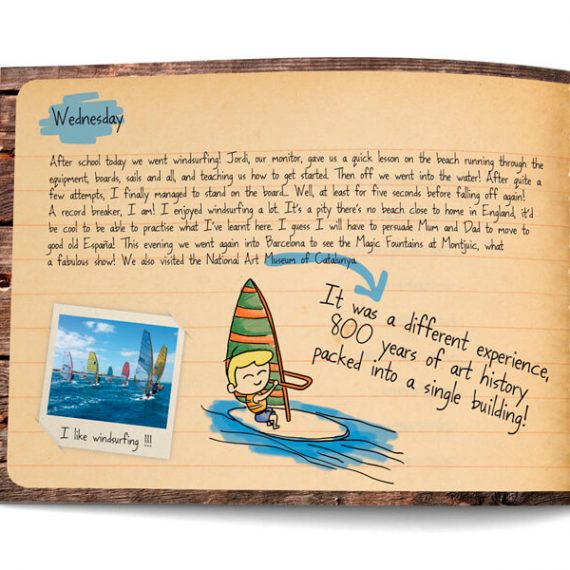 Wednesday
After school today we went windsurfing! Jordi, our monitor, gave us a quick lesson on the beach running through the
equipment, boards, sails and all, and teaching us how to get started. Then off we went into the water! After quite a
few attempts, I finally managed to stand on the board... Well, at least for five seconds before falling off again!
A record breaker, I am! I enjoyed windsurfing a lot. It's a pity there's no beach close to home in England, it'd
be cool to be able to practise what I've learnt here. I guess I will have to persuade Mum and Dad to move to
good old España! This evening we went again into Barcelona to see the Magic Fountains at Montjuic, what
a fabulous show! We also visited the National Art Museum of Catalunya
It was a different experience,
800 years of art history
packed into a single building!
I like windsurfing !!!